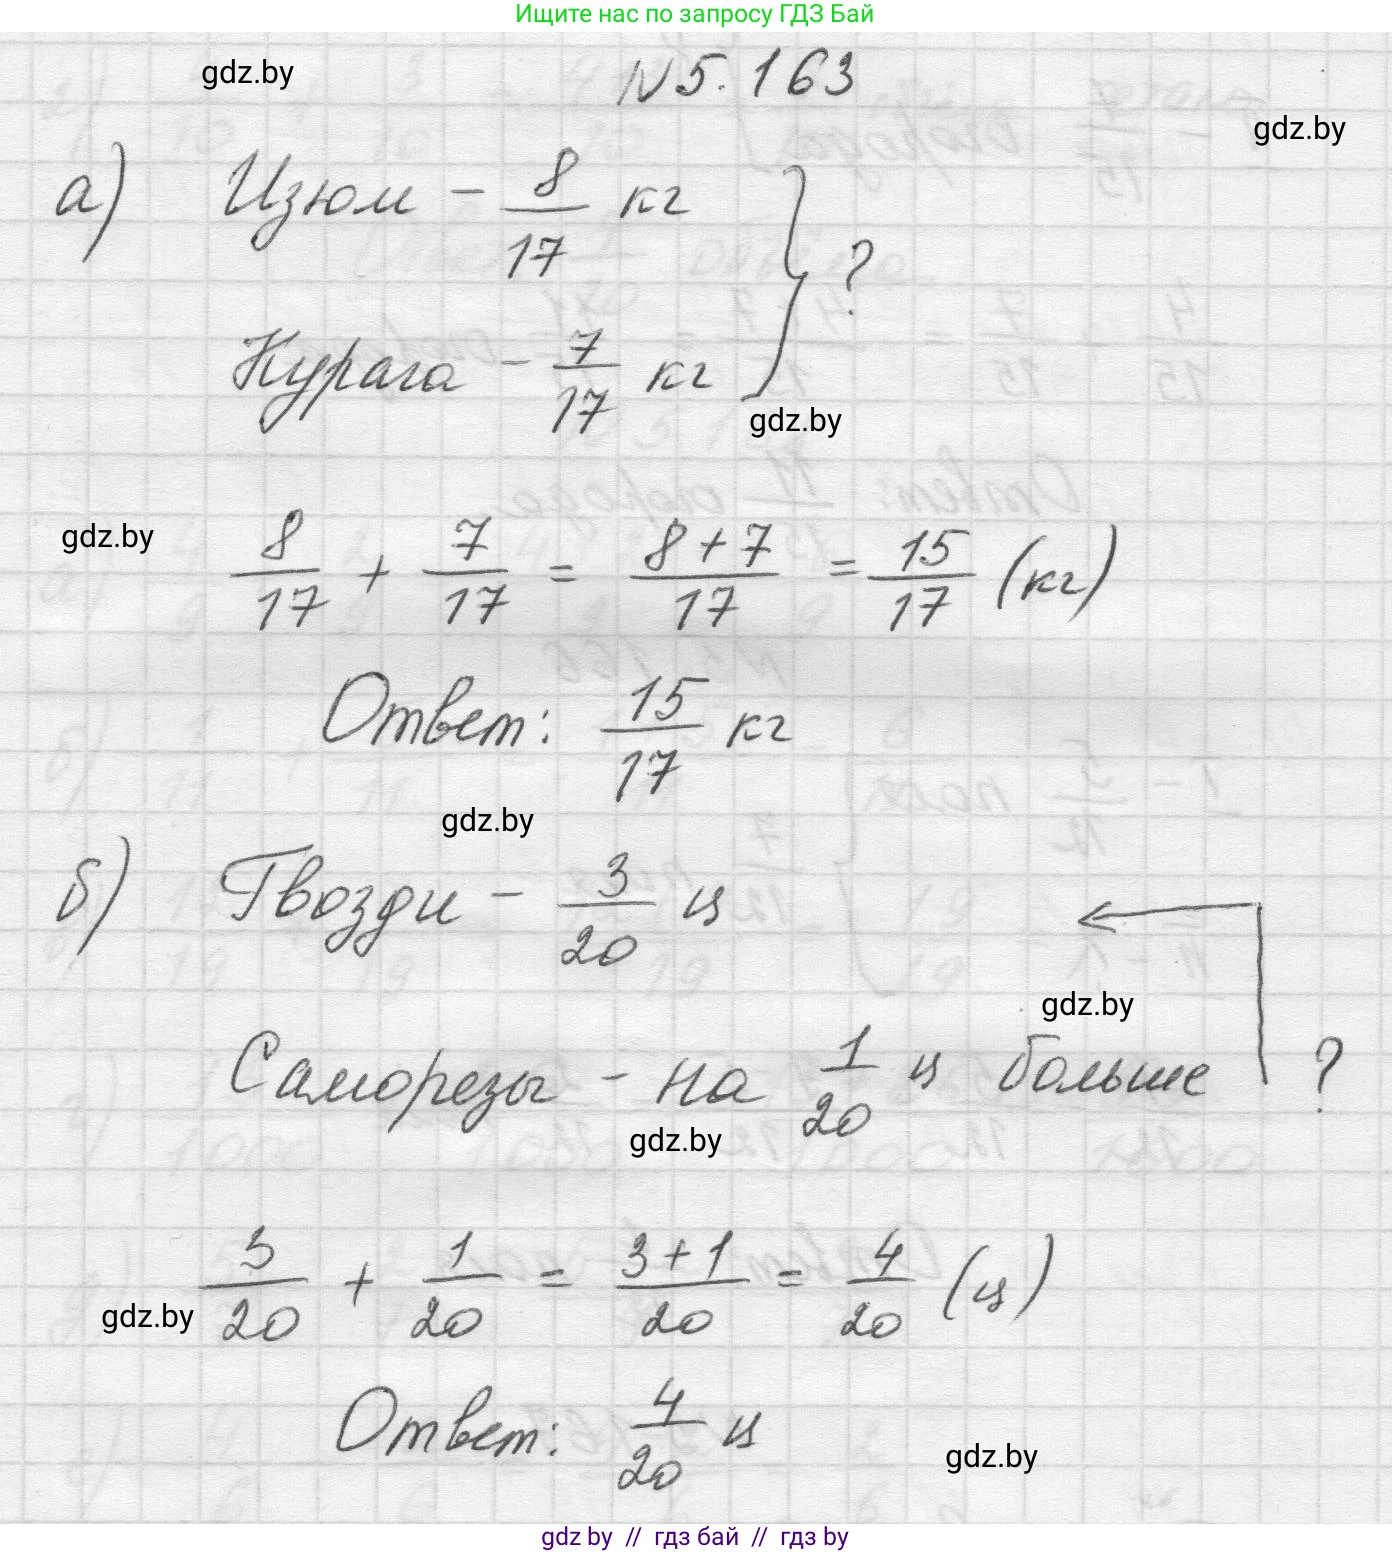 Ищите нас по запросу ГДЗ Бай
gdz.by
N 5.163
gdz.by
а) Изюм - 8/17 кг
?
Курага - 7/17 кг
gdz.by
gdz.by
8/17 + 7/17 = 8+7/17 = 15/17 (кг)
Ответ: 15/17 кг
gdz.by
б) Гвозди - 3/20 ц
gdz.by
Саморезы - на 1/20 ц больше ?
gdz.by
3/20 + 1/20 = 3+1/20 = 4/20 (ц)
gdz.by
Ответ: 4/20 ц
gdz.by
gdz by // гдз бай // гдз by